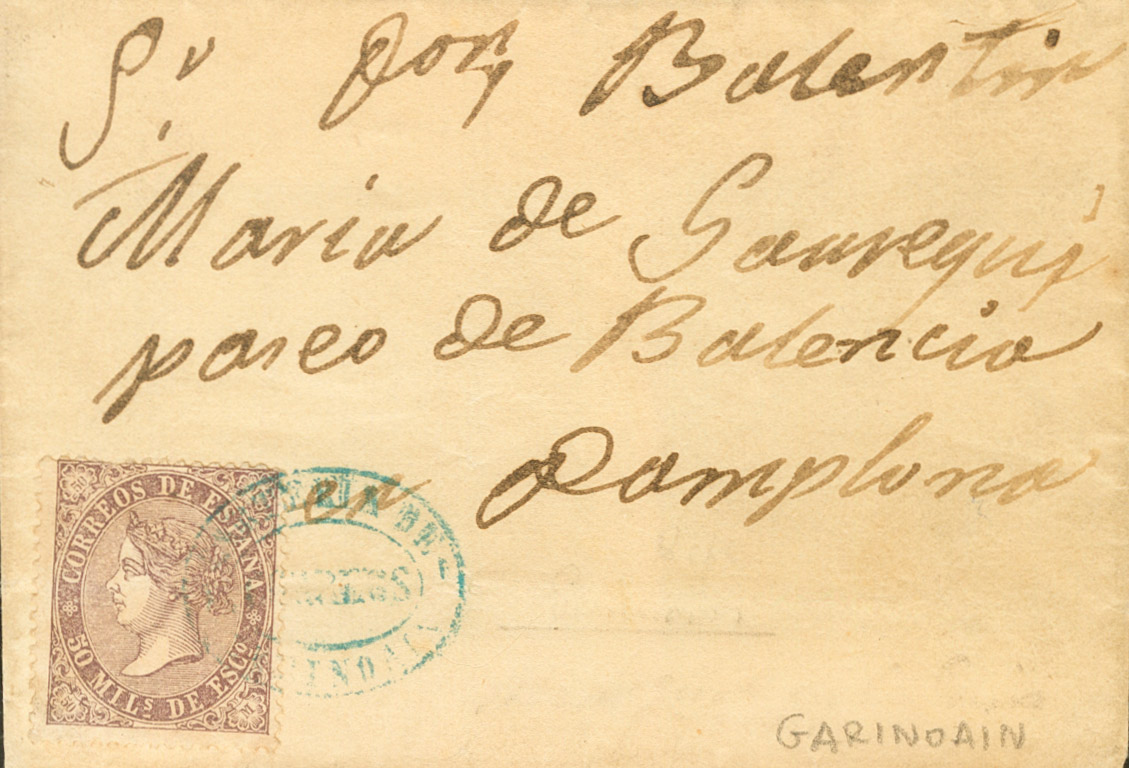 Sr. Don Balentin
Maria de Gauregui
paseo de Balencia
en Pamplona
CORREOS DE ESPAÑA
50 MILS DE ESCO
DE
GARINOAIN